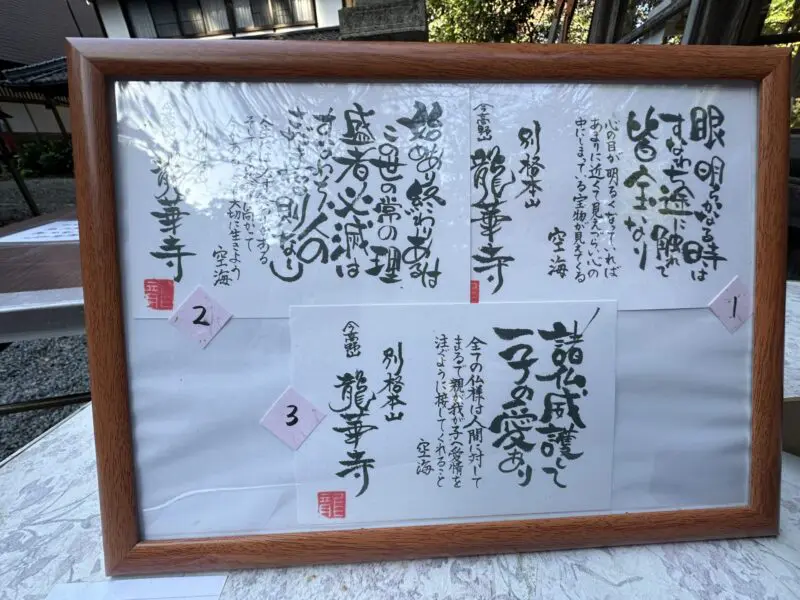 眼明らかなる時は
すなわち途に触れて
皆宝なり
心の目が明るくなっていれば
あまりに近くて見えづらい心の
中にしまっている宝物が見えてくる
空海
別格本山
今高野山
龍華寺
1
始めあり終わりあるは
この世の常の理
盛者必滅は
すなわち人の
さだまれる則なり
大切に生きよう
空海
龍華寺
龍
2
諸仏威護して
一子の愛あり
全ての仏様は人間に対して
まるで親が我が子へ愛情を
注ぐように接してくれること
空海
別格本山
今高野山
龍華寺
龍
3